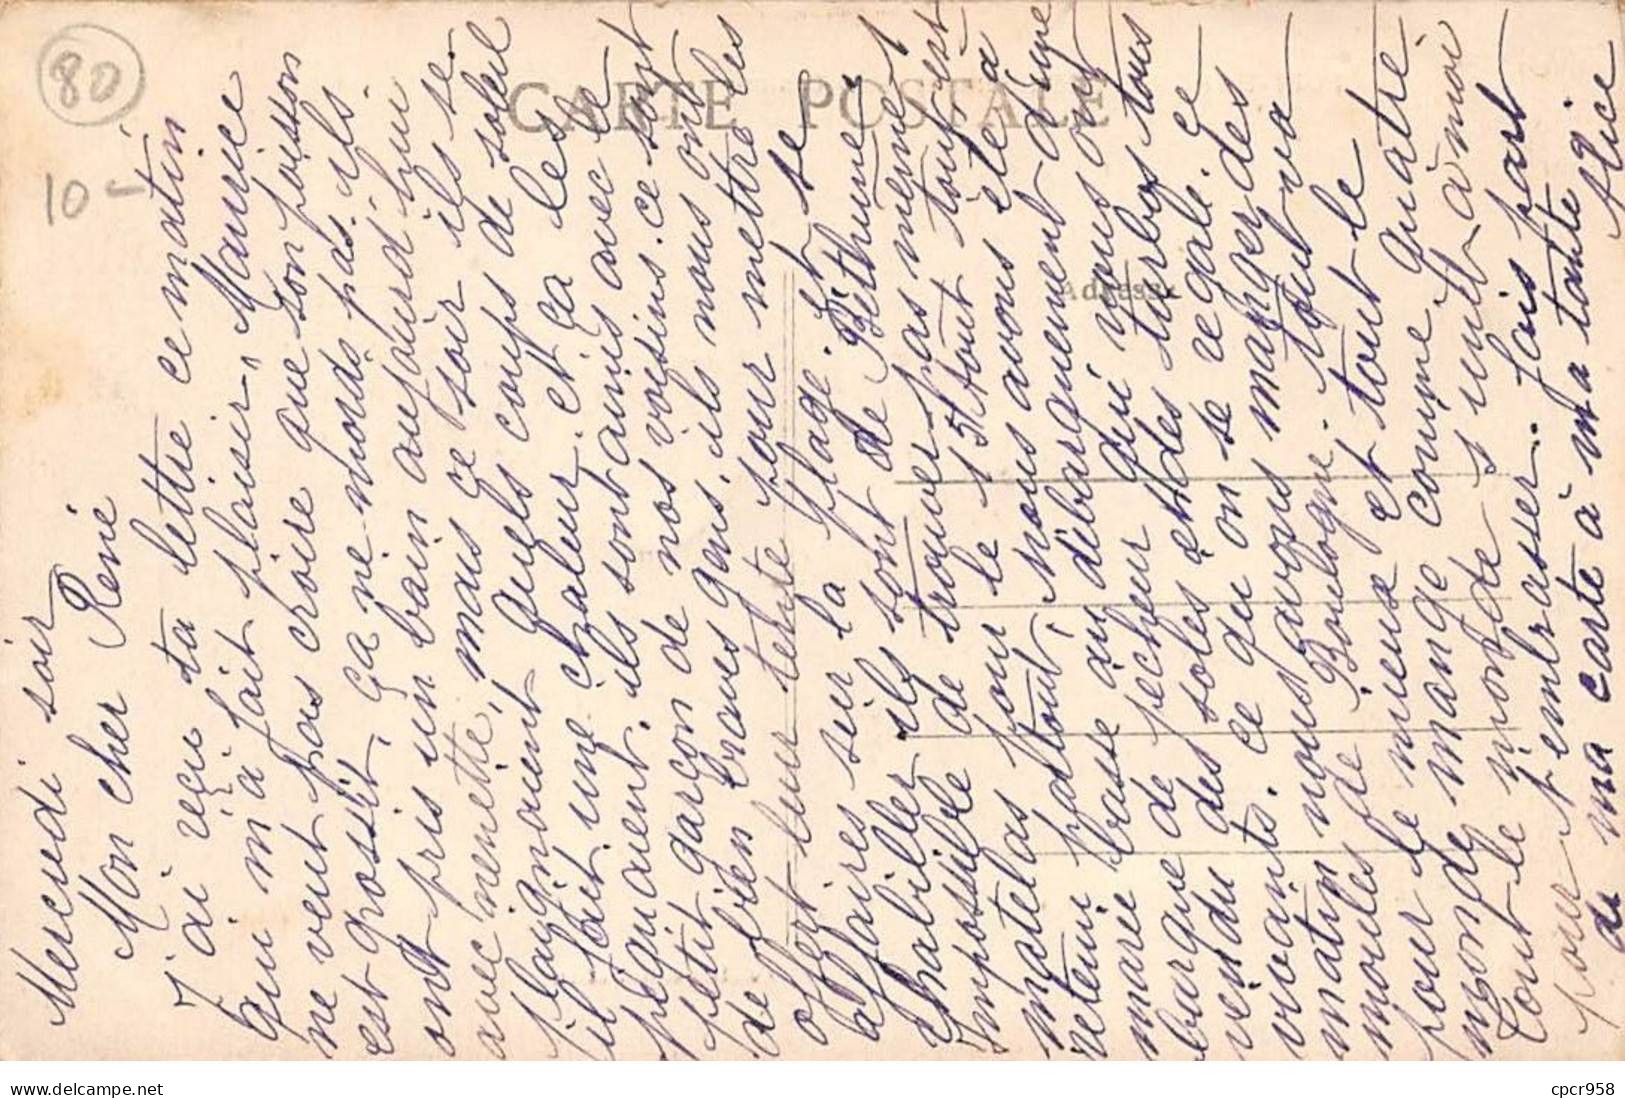 80
10 -
CARTE POSTALE
Adresse
Mercredi soir
Mon cher René
J'ai reçu ta lettre ce matin
qui m'a fait plaisir, Maurice
ne veut pas croire que son poisson
est grossit, ça ne mords pas, ils
ont pris un bain aujourd'hui
avec menette, mais ce soir ils se
plaignaient quels coups de soleil
il fait une chaleur et ça les
piquaient, ils sont amis avec le
petit garçon de nos voisins. ce sont
de bien braves gens, ils nous ont
offert leur tente pour mettre les
affaires sur la plage et se
habiller ils sont de Béthune
Impossible de trouver pas même 1
matelas pour le 15 Aout tout est
retenu partout, nous avons été à
marée basse au débarquement d'une
barque de pêcheur qui nous ont
vendu des soles et des turbos tous
vivants. ce qu'on se régale. Ce
matin nous avons mangé des
moules de Boulogne. tout va
pour le mieux et tout le
monde mange comme quatre
tout le monde s'unit à moi
pour t'embrasser. fais part
de ma carte à ma tante
Alice
cpcr958